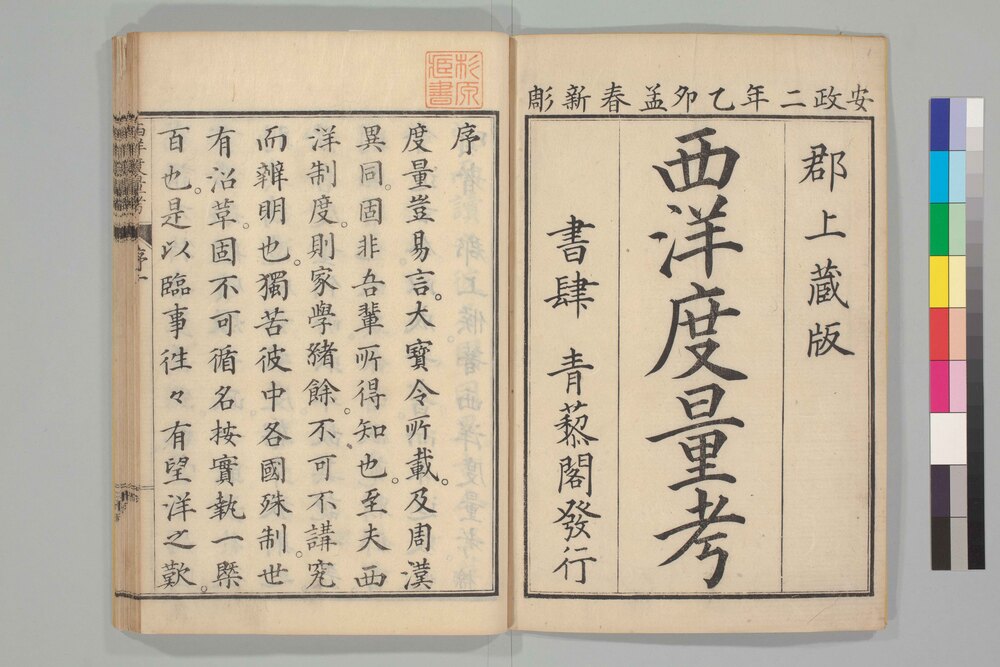 安政二年乙卯孟春新彫
郡上蔵版
西洋度量考
書肆 青藜閣發行
杉原
蔵書
序
度量豈易言。大寶令所載。及周漢
異同。固非吾輩所得知也。至夫西
洋制度。則家學緒餘。不可不講究
而辯明也。獨苦彼中各國殊制。世
有沿革。固不可循名按實執一槩
百也。是以臨事徃々有望洋之歎。
西洋度量考
序 一